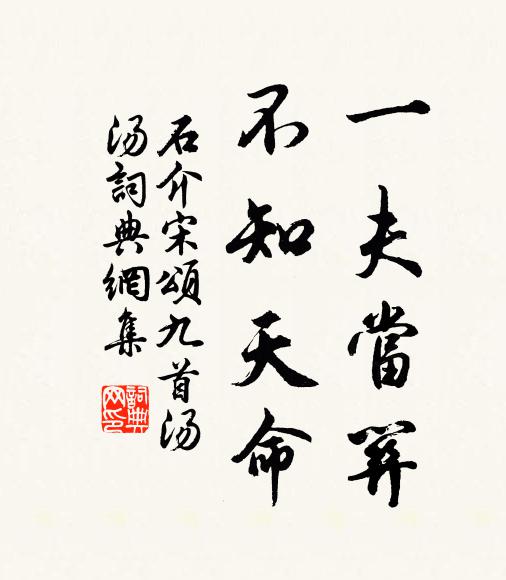 一夫當關
不知天命
石介宋頌九首湯
湯詞典網集
詞典
网印